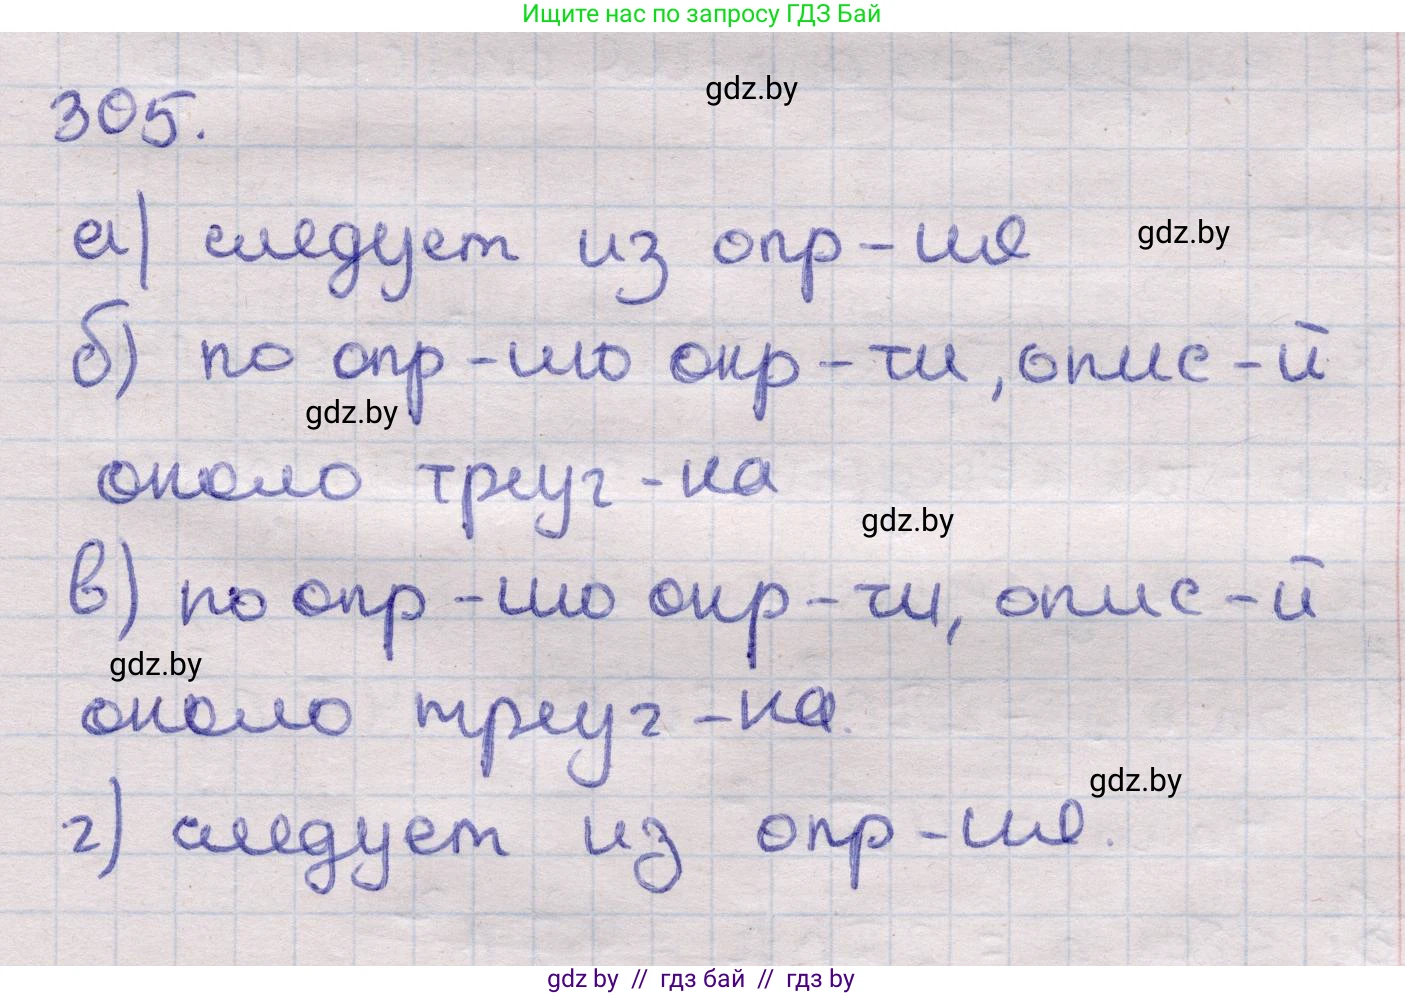 Ищите нас по запросу ГДЗ Бай
gdz.by
305.
а) следует из опр-ия
gdz.by
б) по опр-ию окр-ти, опис-й
gdz.by
около треуг-ка
gdz.by
в) по опр-ию окр-ти, опис-й
gdz.by
около треуг-ка.
gdz.by
г) следует из опр-ия.
gdz.by // гдз бай // гдз by